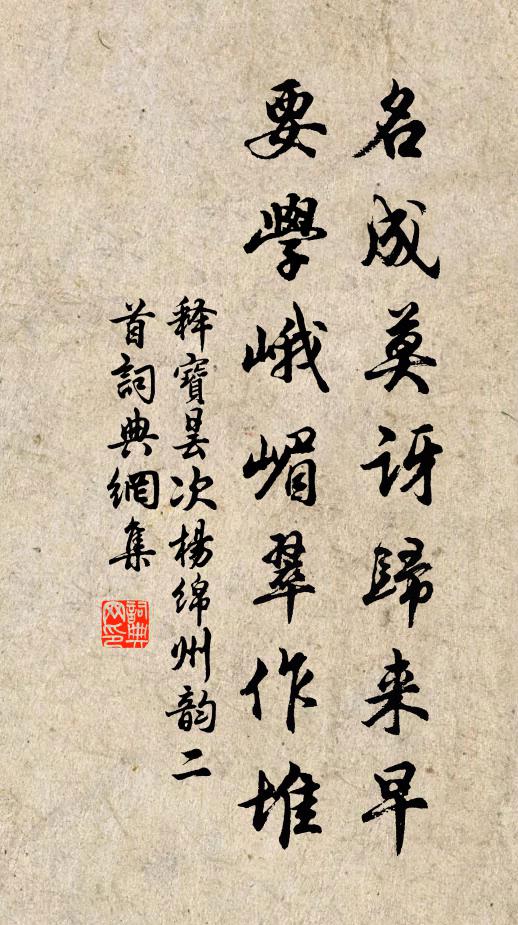 名成莫訝歸来早
要學峨嵋翠作堆
釋寶曇次楊綿州韵二
首詞典網集
詞典網印